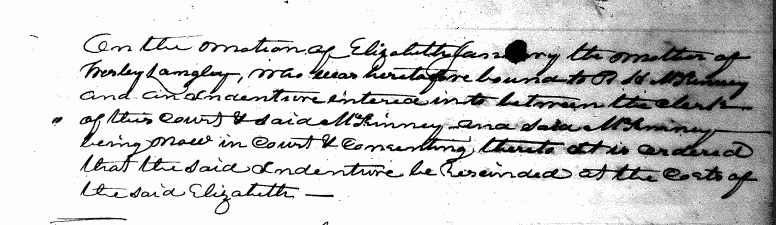 On the motion of Elizabeth the mother of
Presley Langley, who was heretofore bound to R. H. McKinney
and an Indenture entered into between the Clerk
of this Court & said McKinney and said McKinney
being now in Court & Consenting thereto it is ordered
that the said Indenture be Rescinded at the Costs of
the said Elizabeth —